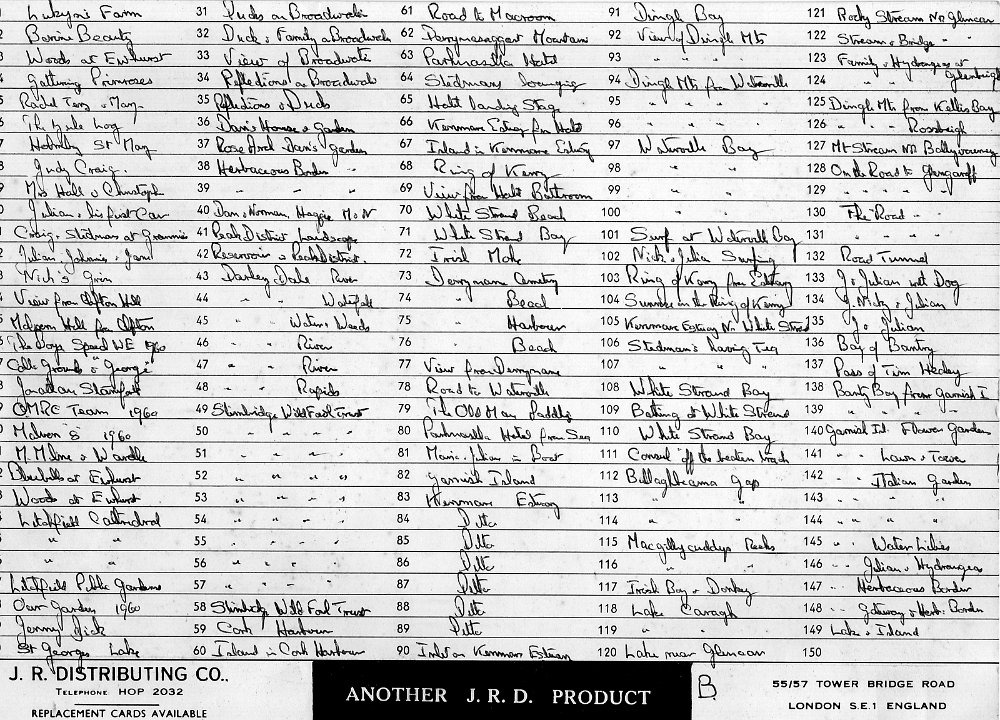 Farm 31 Ducks on Broadwater 61 Road to Macroom 91 Dingle Bay 121 Rocky Stream Nr Glencar
2 Beauty 32 Duck & Family on Broadwater 62 Mountains 92 View of Dingle Mts 122 Stream & Bridge " "
3 Woods at Ewhurst 33 View of Broadwater 63 Parknasilla Hotel 93 " " " 123 Family & Hydrangea at
4 Gathering Primroses 34 Reflections on Broadwater 64 Stedmans lounging 94 Dingle Mts from Waterville 124 " " Glenbeigh
5 Rachel Terry & Mary 35 Reflections & Ducks 65 Hotel landing Stage 95 " " " " 125 Dingle Mts from Kells Bay
6 The Yule Log 36 Dan's House & Garden 66 Kenmare Estuary from Hotel 96 " " " " 126 " " " Rossbeigh
7 St Mary 37 Rose Arch Dan's garden 67 Island in Kenmare Estuary 97 Waterville Bay 127 Mt Stream Nr
8 Judy Craig 38 Herbaceous Border " 68 Ring of Kerry 98 " " 128 On the Road to Glengarriff
9 Mrs Hall & Christoph 39 " " " 69 View from Hotel Bathroom 99 " " 129 " " " "
Julian & his first Car 40 Dan, Norman, M & N 70 White Strand Beach 100 " " 130 The Road " "
Craig, Stedman at Grannies 41 Peak District Landscape 71 White Strand Bay 101 Surf at Waterville Bay 131 " " "
Julian Johnnie & Jane 42 Reservoir & Peak District. 72 Irish Moke 102 Nick & Julian Surfing 132 Road Tunnel
Nick's Grin 43 Darley Dale River 73 Derrynane Cemetery 103 Ring of Kerry from Estuary 133 J & Julian with Dog
View from Clifton Hill 44 " " Waterfall 74 " Beach 104 Sunrise in the Ring of Kerry 134 J. Nicky & Julian
Malvern Hills from Clifton 45 " " Water & Woods 75 " Harbour 105 Kenmare Estuary Nr White Strand 135 J & Julian
The Boys Speed WE 1960 46 " " River 76 " Beach 106 Stedman's having Tea 136 Bay of Bantry
Grounds & "George" 47 " " River 77 View from Derrynane 107 " " " 137 Pass of Tim Healey
Jonathan 48 " " Rapids 78 Road to Waterville 108 White Strand Bay 138 Bantry Bay from Garnish I
OMRC Team 1960 49 Slimbridge Wild Fowl Trust 79 The Old Man Paddling 109 Bathing at White Strand 139 " " " "
Malvern "S" 1960 50 " " " " 80 Parknasilla Hotel from Sea 110 White Strand Bay 140 Garnish Isl. Flower Garden
M. Milne & Wardle 51 " " " " 81 Marie, Julian in Boat 111 Consul "off the beaten track 141 " " Lawn & Tower
Bluebells at Ewhurst 52 " " " " 82 Garnish Island 112 Ballaghbeama Gap 142 " " Italian Garden
Woods at Ewhurst 53 " " " " 83 Kenmare Estuary 113 " " 143 " " " "
Litchfield Cathedral 54 " " " " 84 Ditto 114 " " 144 " " " "
" " 55 " " " " 85 Ditto 115 Macgillycuddys Reeks 145 " " Water Lilies
" " 56 " " " " 86 Ditto 116 " " 146 " " Julian & Hydrangea
Litchfield Public Gardens 57 " " " " 87 Ditto 117 Irish Boy & Donkey 147 " " Herbaceous Border
Our Garden 1960 58 Slimbridge Wild Fowl Trust 88 Ditto 118 Lake Caragh 148 " " Gateway & Herb. Border
Jenny Dick 59 Cork Harbour 89 Ditto 119 " " 149 Lake & Island
St Georges Lake 60 Island in Cork Harbour 90 Inlet on Kenmare Estuary 120 Lake near Glencar 150
J. R. DISTRIBUTING CO..
TELEPHONE HOP 2032
REPLACEMENT CARDS AVAILABLE
ANOTHER J.R.D. PRODUCT
B
55/57 TOWER BRIDGE ROAD
LONDON S.E.1 ENGLAND